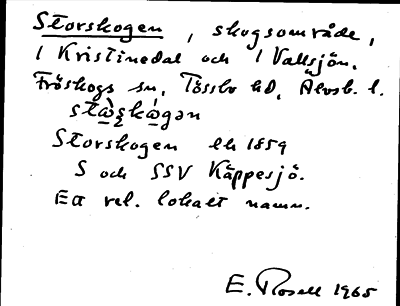 Storskogen, skogsområde,
1 Kristinedal och 1 Vallsjön.
Fröskogs sn, Tössbo hd, Älvsb. l.
Storskogen ek 1859
S och SSV Käppesjö.
Ett rel. lokalt namn.
E. Rosell 1965